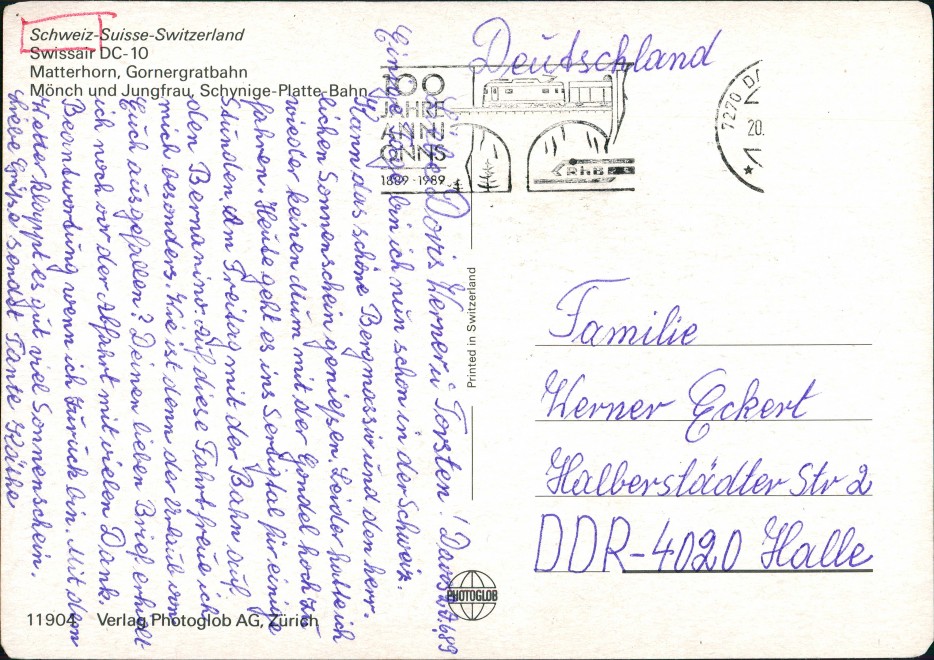 Schweiz-Suisse-Switzerland
Swissair DC-10
Matterhorn, Gornergratbahn
Mönch und Jungfrau, Schynige-Platte-Bahn
Deutschland
100
JAHRE
ANNI
ONNS
1889-1989
RhB
7270 D
20.
Davos, d. 89
Doris Werner u Torsten!
bin ich nun schon in der Schweiz.
Kann das schöne Bergmassiv und den herr-
lichen Sonnenschein geniessen. Leider hatte ich
wieder keinen Mum mit der Gondel hoch zu
fahren. Heute geht es ins Sertigtal für einige
Stunden. Am Freitag mit der Bahn auf
den Bernania. Auf diese Fahrt freue ich
mich besonders. Wie ist denn der Urlaub von
Euch ausgefallen? Deinen lieben Brief erhielt
ich noch vor der Abfahrt mit vielen Dank.
Berntwortung wenn ich zurück bin. Mit dem
Wetter klappt es gut viel Sonnenschein.
Liebe Grüsse sendet Tante Käthe
Printed in Switzerland
Familie
Werner Eckert
Halberstädter Str 2
DDR-4020 Halle
PHOTOGLOB
11904 Verlag Photoglob AG, Zürich